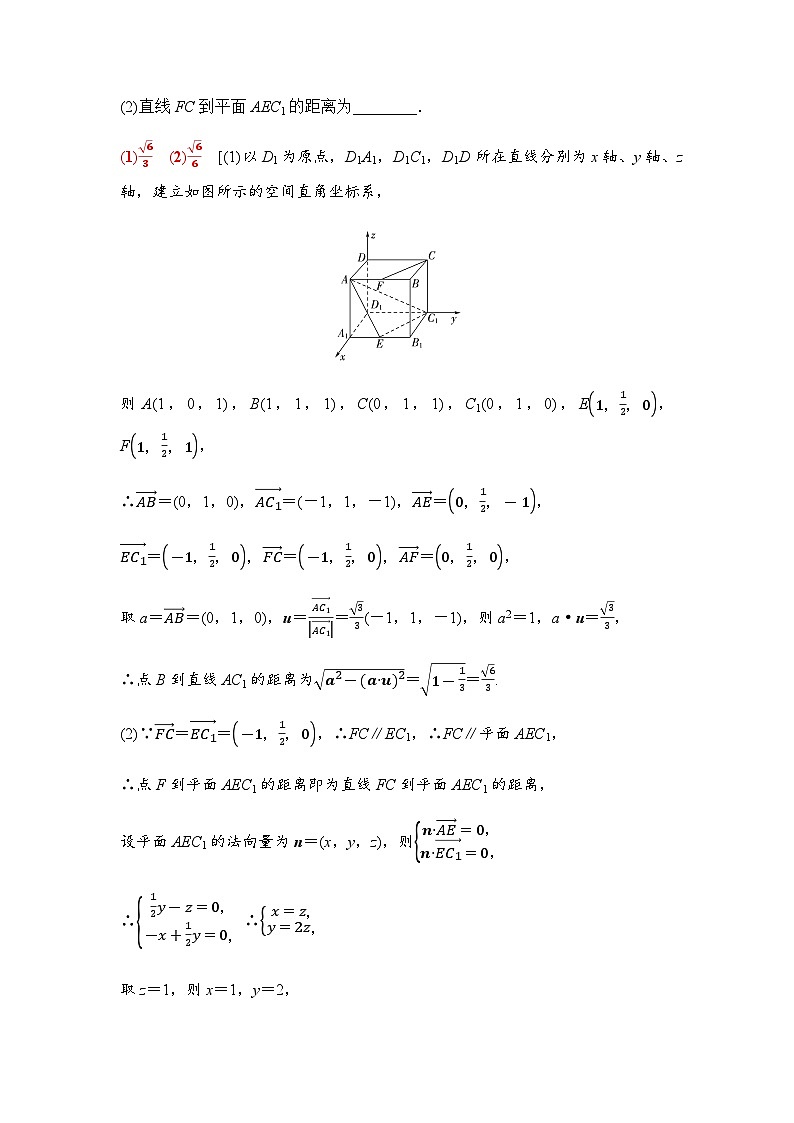 (2)直线FC到平面AEC₁的距离为________.
(1)√6/3 (2)√6/6 [(1)以D₁为原点，D₁A₁，D₁C₁，D₁D所在直线分别为x轴、y轴、z
轴，建立如图所示的空间直角坐标系，
z
D C
A F B
D₁
C₁ y
A₁ E B₁
x
则A(1，0，1)，B(1，1，1)，C(0，1，1)，C₁(0，1，0)，E(1，1/2，0)，
F(1，1/2，1)，
∴AB→=(0，1，0)，AC₁→=(－1，1，－1)，AE→=(0，1/2，－1)，
EC₁→=(－1，1/2，0)，FC→=(－1，1/2，0)，AF→=(0，1/2，0)，
取a=AB→=(0，1，0)，u=AC₁→/|AC₁→|=√3/3(－1，1，－1)，则a²=1，a·u=√3/3，
∴点B到直线AC₁的距离为√(a²－(a·u)²)=√(1－1/3)=√6/3.
(2)∵FC→=EC₁→=(－1，1/2，0)，∴FC∥EC₁，∴FC∥平面AEC₁，
∴点F到平面AEC₁的距离即为直线FC到平面AEC₁的距离，
设平面AEC₁的法向量为n=(x，y，z)，则{n·AE→=0，
n·EC₁→=0，
∴{1/2y－z=0，
－x+1/2y=0， ∴{x=z，
y=2z，
取z=1，则x=1，y=2，